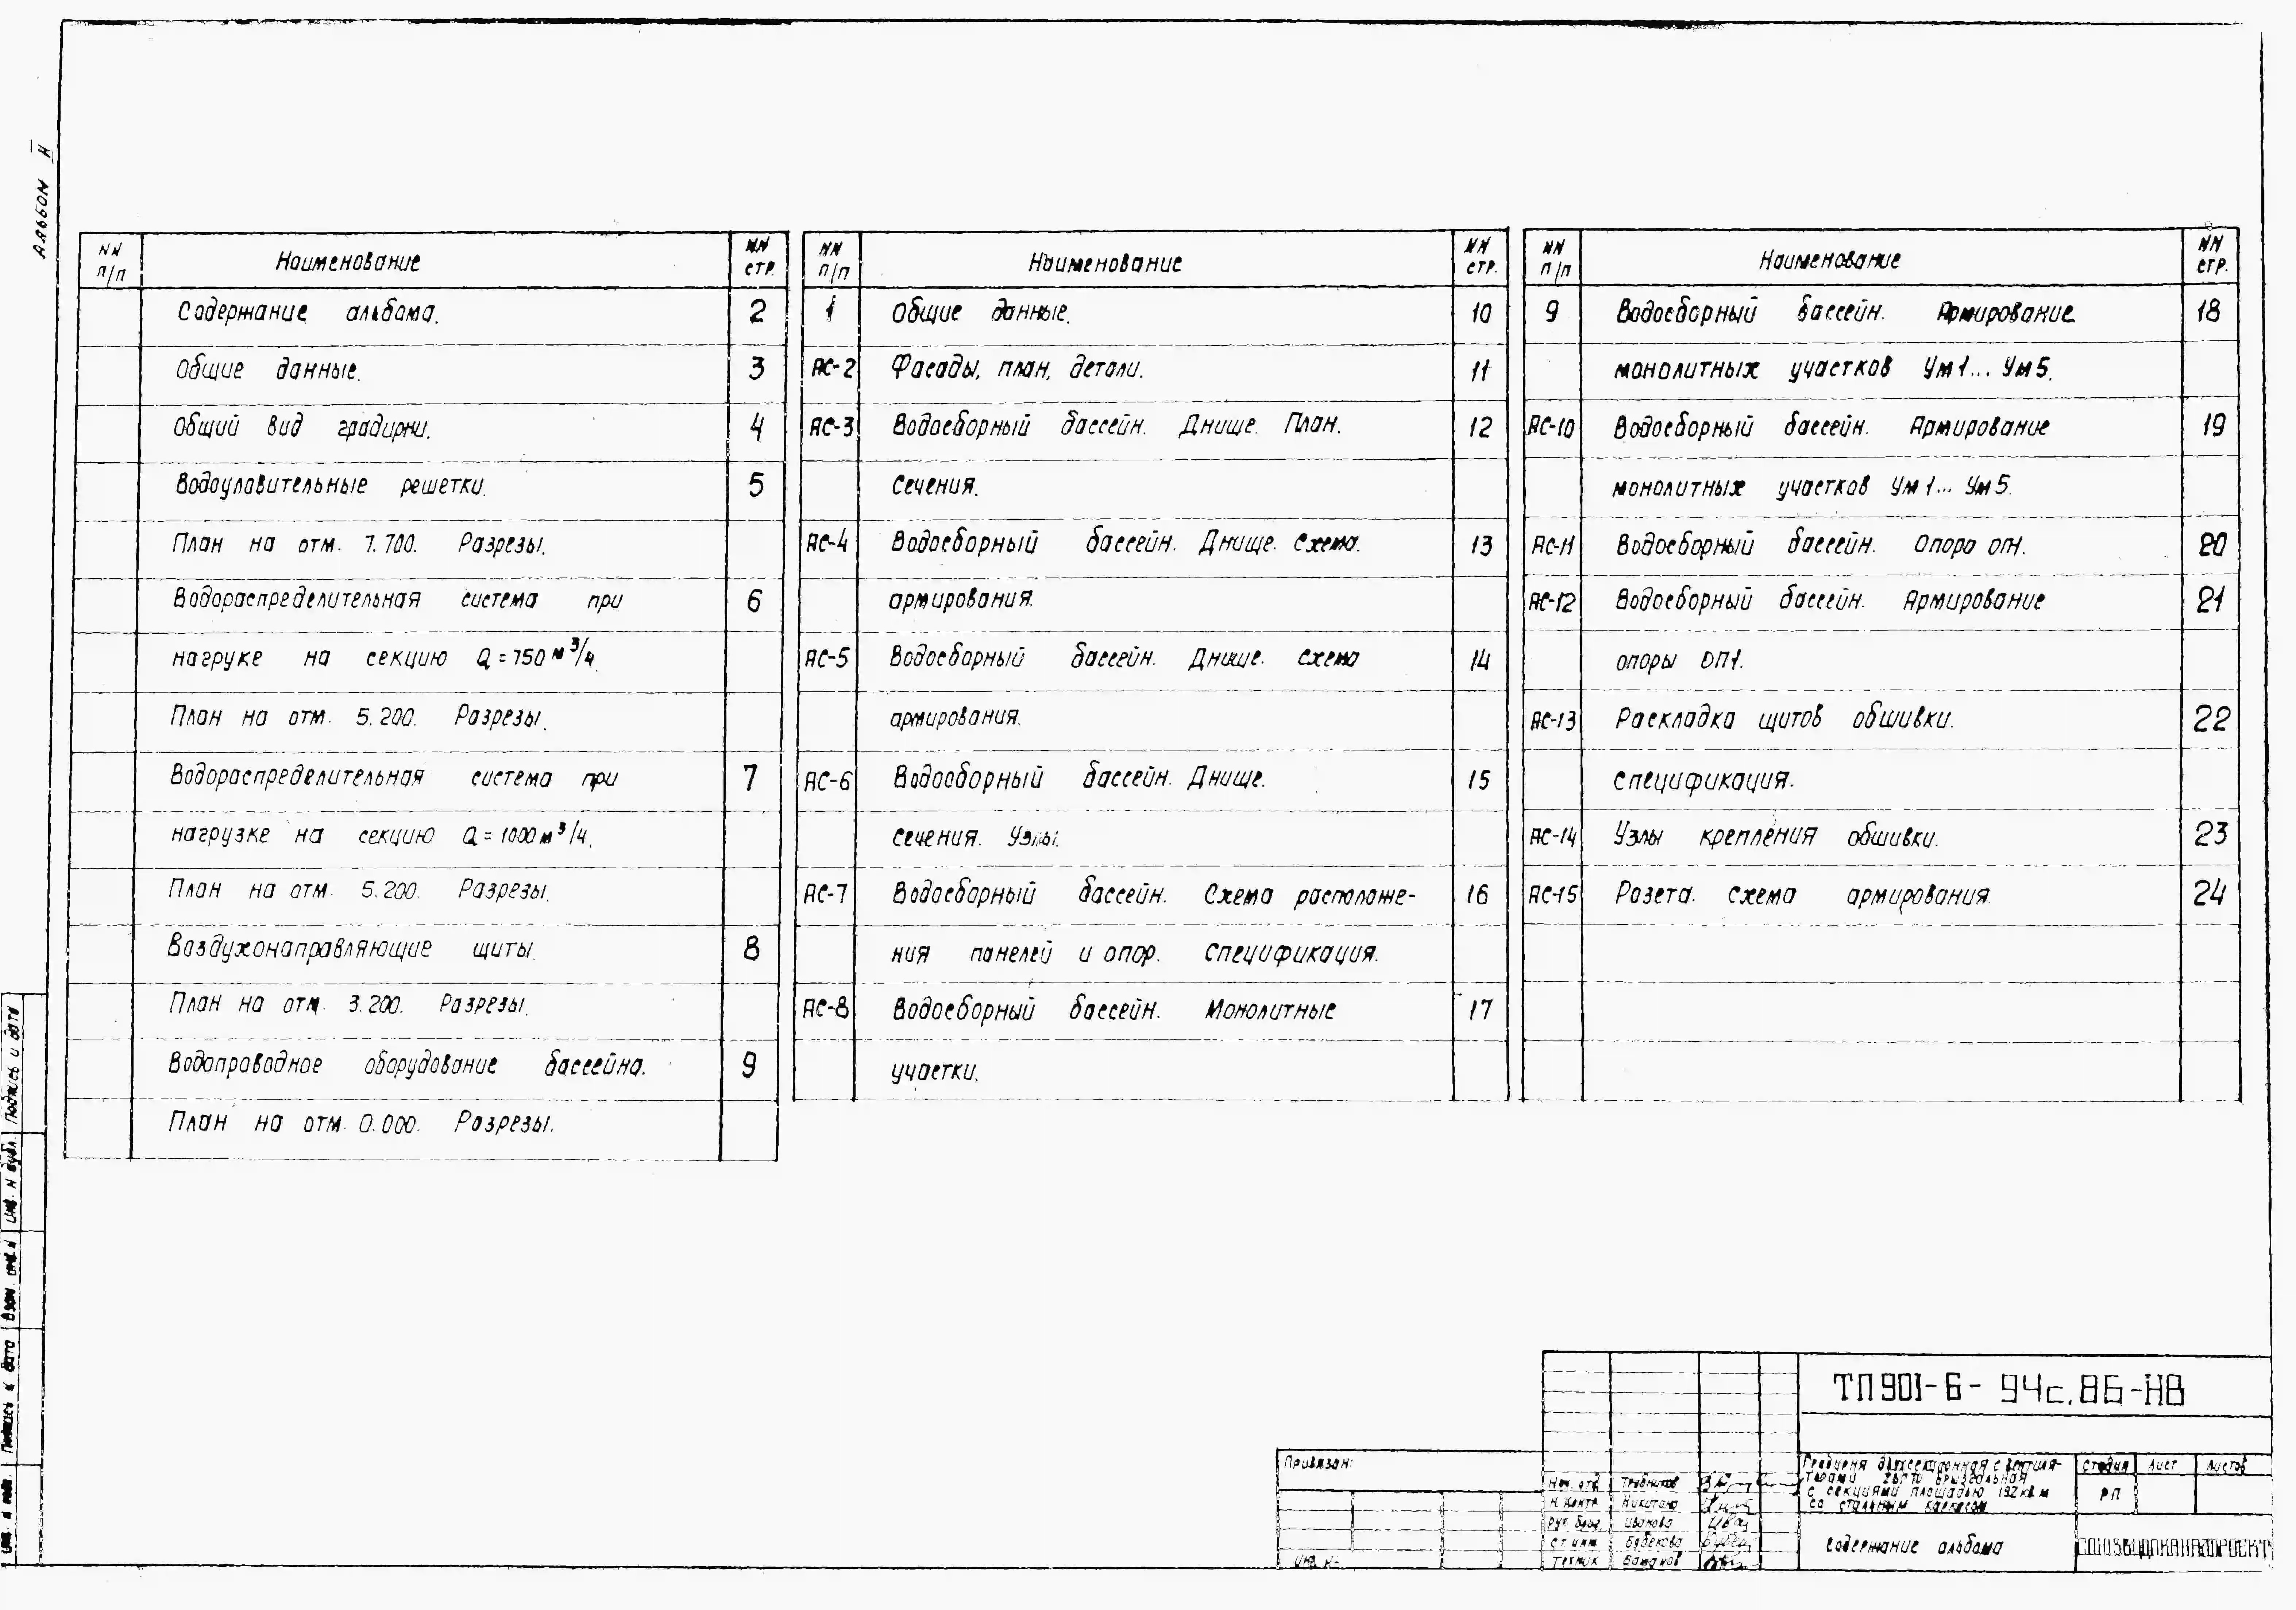 Альбом II
NN п/п Наименование NN стр.
Содержание альбома. 2
Общие данные. 3
Общий вид градирни. 4
Водоуловительные решетки. 5
План на отм. 7.700. Разрезы.
Водораспределительная система при 6
нагруке на секцию Q=750 м³/ч.
План на отм. 5.200. Разрезы.
Водораспределительная система при 7
нагрузке на секцию Q=1000 м³/ч.
План на отм. 5.200. Разрезы.
Воздухонаправляющие щиты. 8
План на отм. 3.200. Разрезы.
Водопроводное оборудование бассейна. 9
План на отм. 0.000. Разрезы.
NN п/п Наименование NN стр.
1 Общие данные. 10
АС-2 Фасады, план, детали. 11
АС-3 Водосборный бассейн. Днище. План. 12
Сечения.
АС-4 Водосборный бассейн. Днище. Схема. 13
армирования.
АС-5 Водосборный бассейн. Днище. Схема 14
армирования.
АС-6 Водосборный бассейн. Днище. 15
Сечения. Узлы.
АС-7 Водосборный бассейн. Схема расположе- 16
ния панелей и опор. Спецификация.
АС-8 Водосборный бассейн. Монолитные 17
участки.
NN п/п Наименование NN стр.
9 Водосборный бассейн. Армирование 18
монолитных участков Ум1... Ум5.
АС-10 Водосборный бассейн. Армирование 19
монолитных участков Ум1... Ум5.
АС-11 Водосборный бассейн. Опора оп1. 20
АС-12 Водосборный бассейн. Армирование 21
опоры ОП1.
АС-13 Раскладка щитов обшивки. 22
Спецификация.
АС-14 Узлы крепления обшивки. 23
АС-15 Розета. Схема армирования. 24
Инв. N подл. Подпись и дата Взам. инв. N Инв. N дубл. Подпись и дата
ТП 901-6-94с.86-НВ
Привязан:
Инв. N
Нач. отд. Трубников
Н. контр. Никитина
Рук. бриг. Иванова
Ст. инж. Бубекова
Техник
Градирня двухсекционная с вентиля-
торами 2ВГ70 брызгальная
с секциями площадью 192 кв.м
со стальным каркасом
Стадия Лист Листов
РП
Содержание альбома
СОЮЗВОДОКАНАЛПРОЕКТ